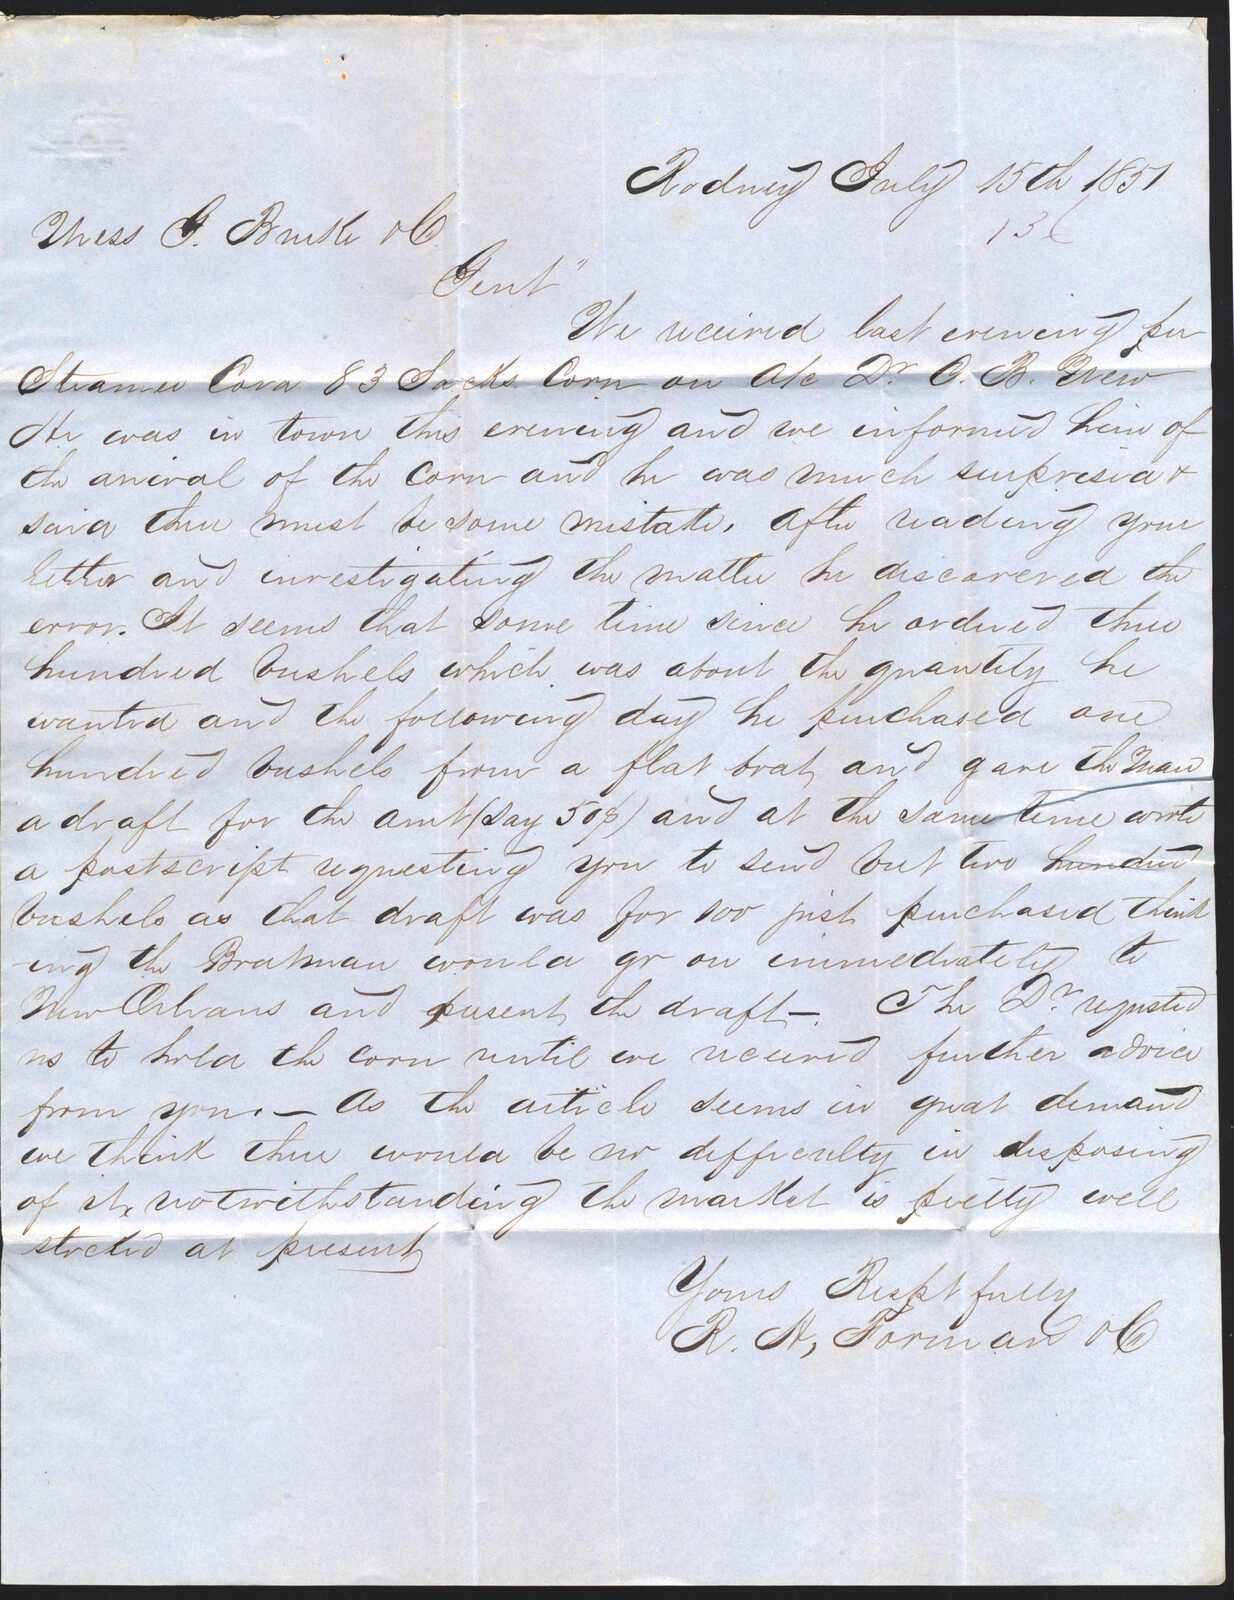 Rodney July 15th 1851
136
Mess G. Burke & C
Gent"
We received last evening per
Steamer Cora 83 Sacks Corn on a/c Dr. C. B. New
He was in town this evening and we informed him of
the arival of the Corn and he was much surprised &
said there must be some mistake. After reading your
letter and investigating the matter he discovered the
error. It seems that some time since he ordered three
hundred bushels which was about the quantity he
wanted and the following day he purchased one
hundred bushels from a flat boat, and gave the man
a draft for the amt (say 50$) and at the same time wrote
a postscript requesting you to send but two hundred
bushels as that draft was for 100 just purchased think
-ing the Boatman would go on immediately to
New Orleans and present the draft—. The Dr. requested
us to hold the corn until we received further advice
from you. — As the article seems in great demand
we think there would be no difficulty in disposing
of it, notwithstanding the market is pretty well
stocked at present
Yours Respt fully
R. H, Forman & C